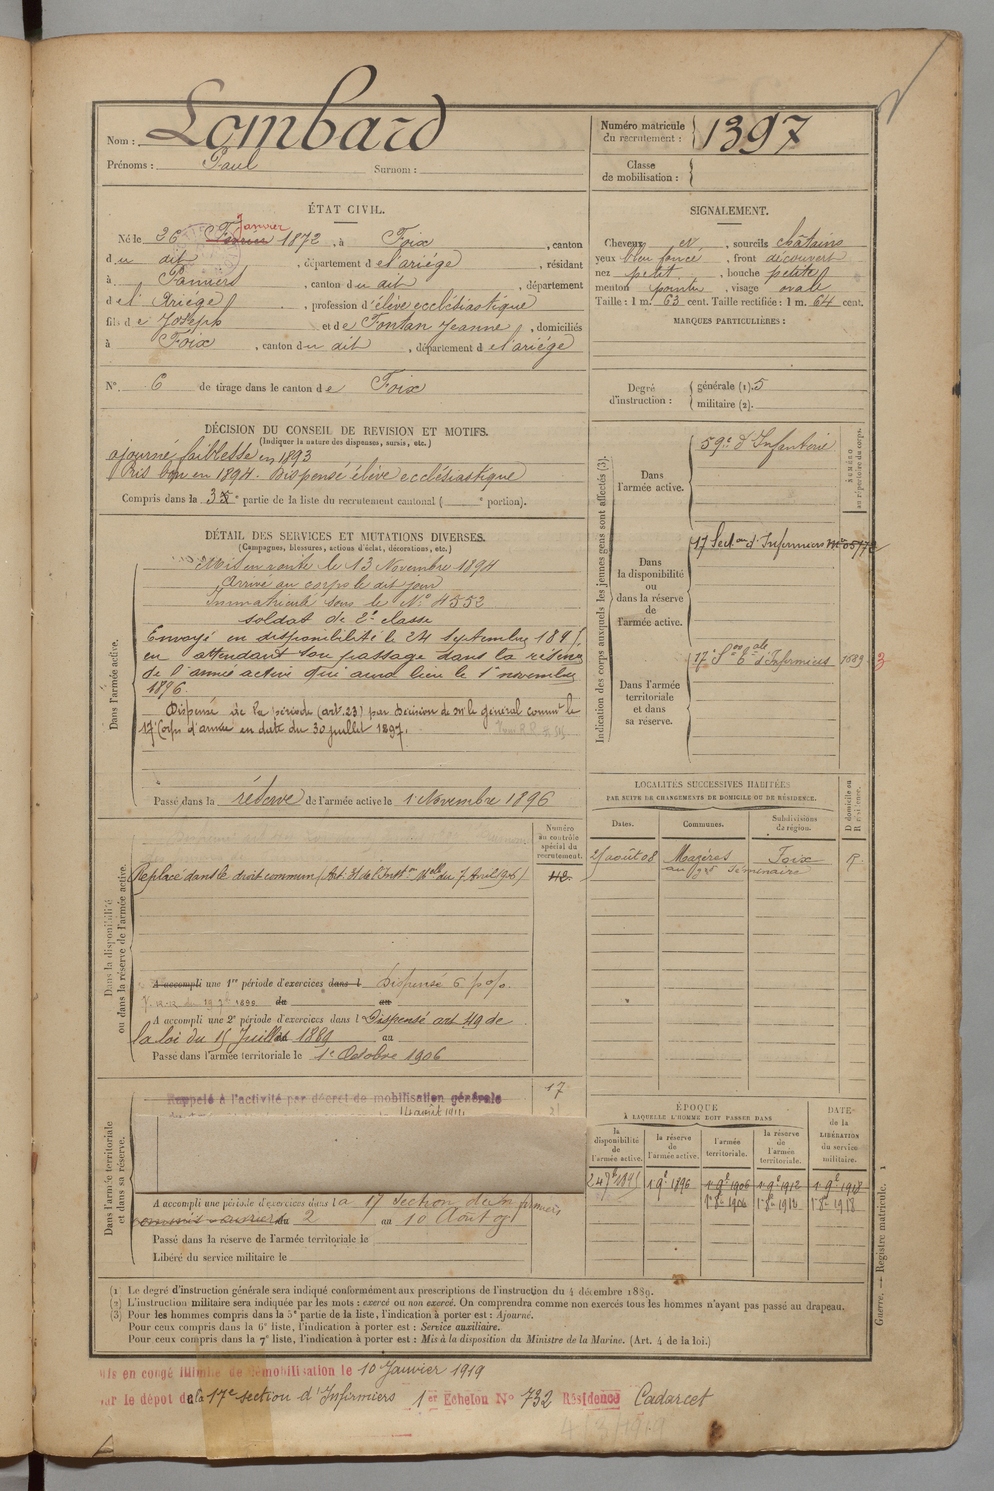 Nom : Lombard
Prénoms : Paul Surnom :
Numéro matricule du recrutement : 1397
Classe de mobilisation :
ÉTAT CIVIL.
Né le 26 Février Janvier 1872, à Foix, canton
du dit, département de l'ariége, résidant
à Pamiers, canton du dit, département
de l'Ariége, profession d'élève ecclésiastique
fils de Joseph et de Fontan Jeanne, domiciliés
à Foix, canton du dit, département de l'ariége
N° 6 de tirage dans le canton de Foix
SIGNALEMENT.
Cheveux et, sourcils châtains
yeux bleu foncé, front découvert
nez petit, bouche petite
menton pointu, visage ovale
Taille : 1 m. 63 cent. Taille rectifiée : 1 m. 64 cent.
MARQUES PARTICULIÈRES :
Degré d'instruction :
générale (1). 5
militaire (2).
DÉCISION DU CONSEIL DE REVISION ET MOTIFS.
(Indiquer la nature des dispenses, sursis, etc.)
ajourné faiblesse en 1893
Pris bon en 1894. Dispensé élève ecclésiastique
Compris dans la 3e partie de la liste du recrutement cantonal ( e portion).
DÉTAIL DES SERVICES ET MUTATIONS DIVERSES.
(Campagnes, blessures, actions d'éclat, décorations, etc.)
Dans l'armée active.
Mis en route le 13 Novembre 1894
Arrivé au corps le dit jour
Immatriculé sous le N° 4552
soldat de 2e classe
Envoyé en disponibilité le 24 Septembre 1895
en attendant son passage dans la réserve
de l'armée active qui aura lieu le 1er novembre
1896.
Dispensé de la période (art. 23) par décision de Mr le général commt le
17e Corps d'armée en date du 30 juillet 1897.
Passé dans la réserve de l'armée active le 1 Novembre 1896
Indication des corps auxquels les jeunes gens sont affectés (3).
NUMÉRO au répertoire du corps.
Dans l'armée active.
59e d'Infanterie
Dans la disponibilité ou dans la réserve de l'armée active.
17 Secton d'Infirmiers
Dans l'armée territoriale et dans sa réserve.
17e Son tale d'Infirmiers 1689
LOCALITÉS SUCCESSIVES HABITÉES
PAR SUITE DE CHANGEMENTS DE DOMICILE OU DE RÉSIDENCE.
Dates. Communes. Subdivisions de région. D domicile ou R résidence.
25 août 08 Mazères Foix R
au gd Séminaire
Dans la disponibilité ou dans la réserve de l'armée active.
Numéro au contrôle spécial du recrutement.
Replacé dans le droit commun (Art. 31 de l'Instron Mlle du 7 Avril 1906)
112
A accompli une 1re période d'exercices dans l Dispensé
1899 du au
A accompli une 2e période d'exercices dans l Dispensé art 49 de
la loi du 15 Juillet 1889 au
Passé dans l'armée territoriale le 1er Octobre 1906
Dans l'armée territoriale et dans sa réserve.
Rappelé à l'activité par décret de mobilisation générale
17
A accompli une période d'exercices dans la 17 section d'infirmiers
du 2 au 10 Août 09
Passé dans la réserve de l'armée territoriale le
Libéré du service militaire le
ÉPOQUE
À LAQUELLE L'HOMME DOIT PASSER DANS
la disponibilité de l'armée active. la réserve de l'armée active. l'armée territoriale. la réserve de l'armée territoriale. DATE de la LIBÉRATION du service militaire.
24 7bre 1895 1er 9e 1896 1er 9e 1906 1er 9e 1912 1er 9e 1918
1er 8e 1906 1er 8e 1912 1er 8e 1918
(1) Le degré d'instruction générale sera indiqué conformément aux prescriptions de l'instruction du 4 décembre 1889.
(2) L'instruction militaire sera indiquée par les mots : exercé ou non exercé. On comprendra comme non exercés tous les hommes n'ayant pas passé au drapeau.
(3) Pour les hommes compris dans la 5e partie de la liste, l'indication à porter est : Ajourné.
Pour ceux compris dans la 6e liste, l'indication à porter est : Service auxiliaire.
Pour ceux compris dans la 7e liste, l'indication à porter est : Mis à la disposition du Ministre de la Marine. (Art. 4 de la loi.)
Guerre. — Registre matricule. 1
Mis en congé illimité de démobilisation le 10 Janvier 1919
par le dépôt de la 17e section d'Infirmiers 1er Échelon N° 732 Résidence Cadarcet
4/3/1919